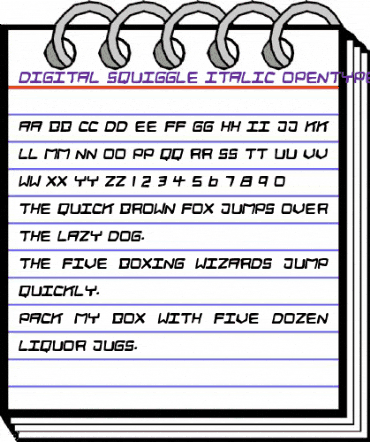 DIGITAL SQUIGGLE ITALIC OPENTYPE
AA BB CC DD EE FF GG HH II JJ KK
LL MM NN OO PP QQ RR SS TT UU VV
WW XX YY ZZ 1 2 3 4 5 6 7 8 9 0
THE QUICK BROWN FOX JUMPS OVER
THE LAZY DOG.
THE FIVE BOXING WIZARDS JUMP
QUICKLY.
PACK MY BOX WITH FIVE DOZEN
LIQUOR JUGS.